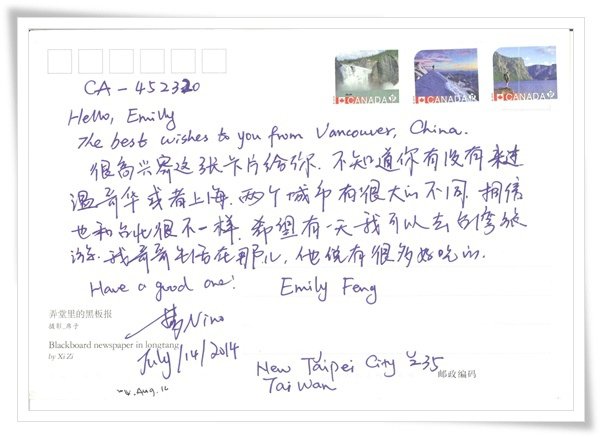 CANADA P CANADA P CANADA P
CA-452320
Hello, Emilly
The best wishes to you from Vancouver, China.
很高兴寄这张卡片给你. 不知道你有没有来过
温哥华或者上海. 两个城市有很大的不同. 相信
也和台北很不一样. 希望有一天我可以去台湾旅
游. 我哥哥生活在那儿, 他说有很多好吃的.
Have a good one! Emily Feng
弄堂里的黑板报
摄影_席子
Blackboard newspaper in longtang
by Xi Zi
& Nino
July/14/2014
Aug.12
New Taipei City 235
Taiwan
邮政编码